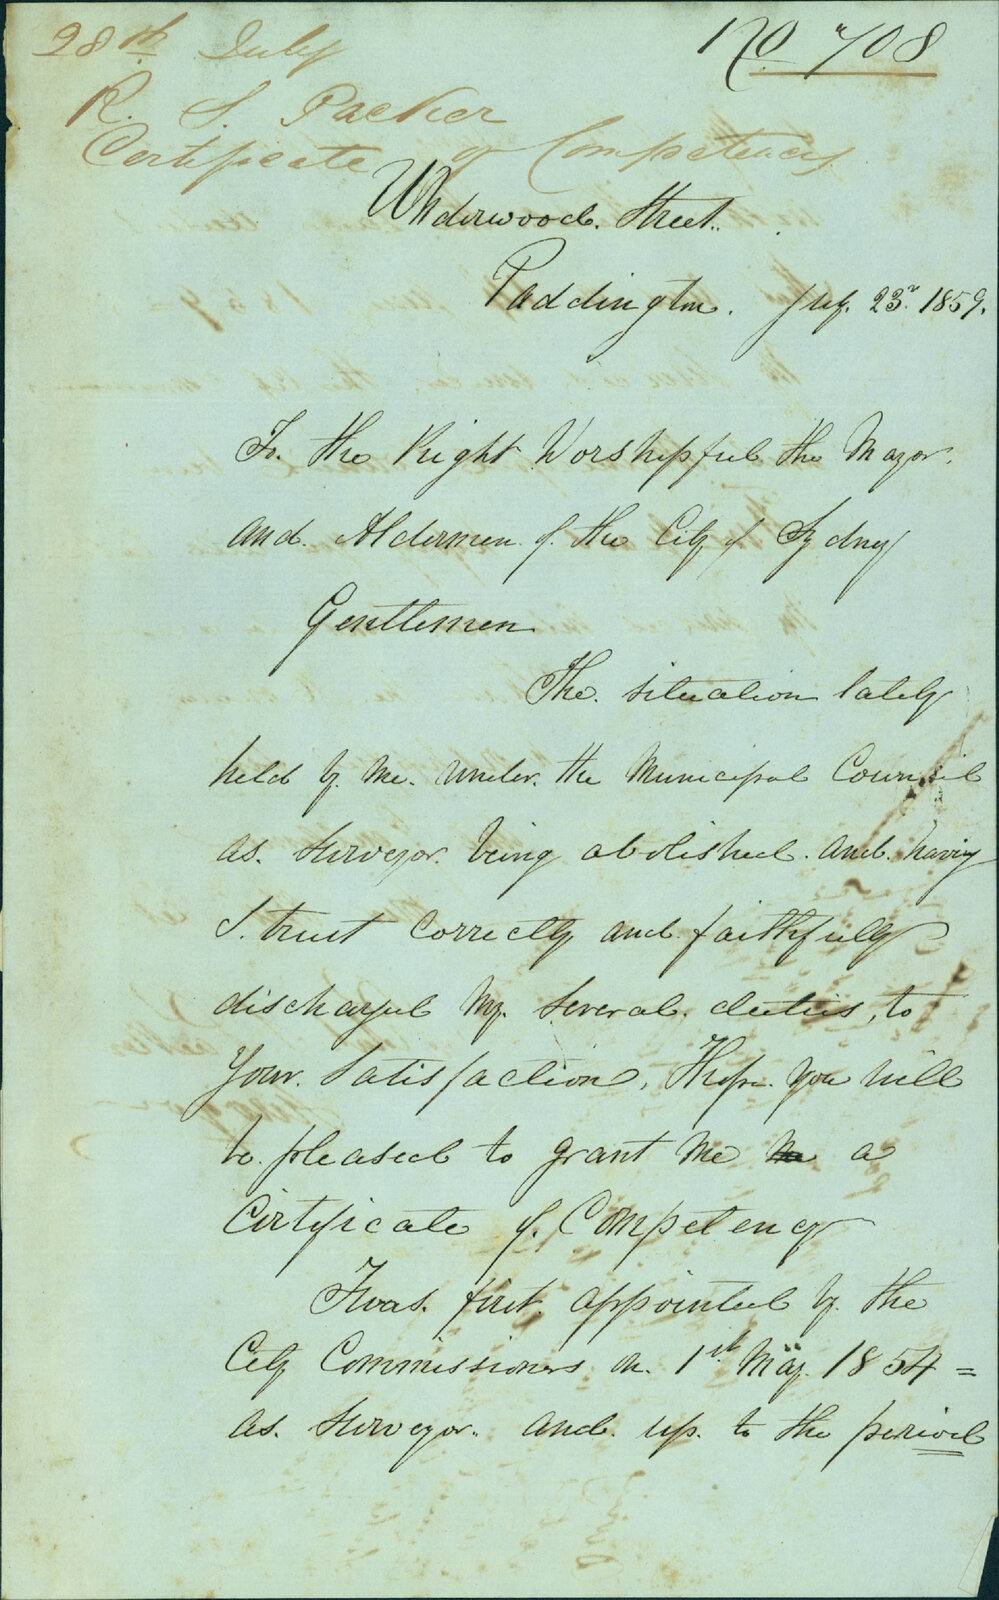 28th July
No 708
R. S. Packer
Certificate of Competency
Underwood. Street.
Paddington. July. 23r. 1859.
To. the Right Worshipful the Mayor.
and. Aldermen of. the City of Sydney
Gentlemen
The. situation lately
held by me. under. the Municipal Council
as. Surveyor. being abolished. and. having
I. trust correctly and faithfully
discharged my. several. duties, to
your. satisfaction, I hope. you will
be. pleased to grant me a
Certificate of. Competency
I was. first. appointed by. the
City Commissioners on. 1st May. 1854 =
as. Surveyor. and. up. to the period